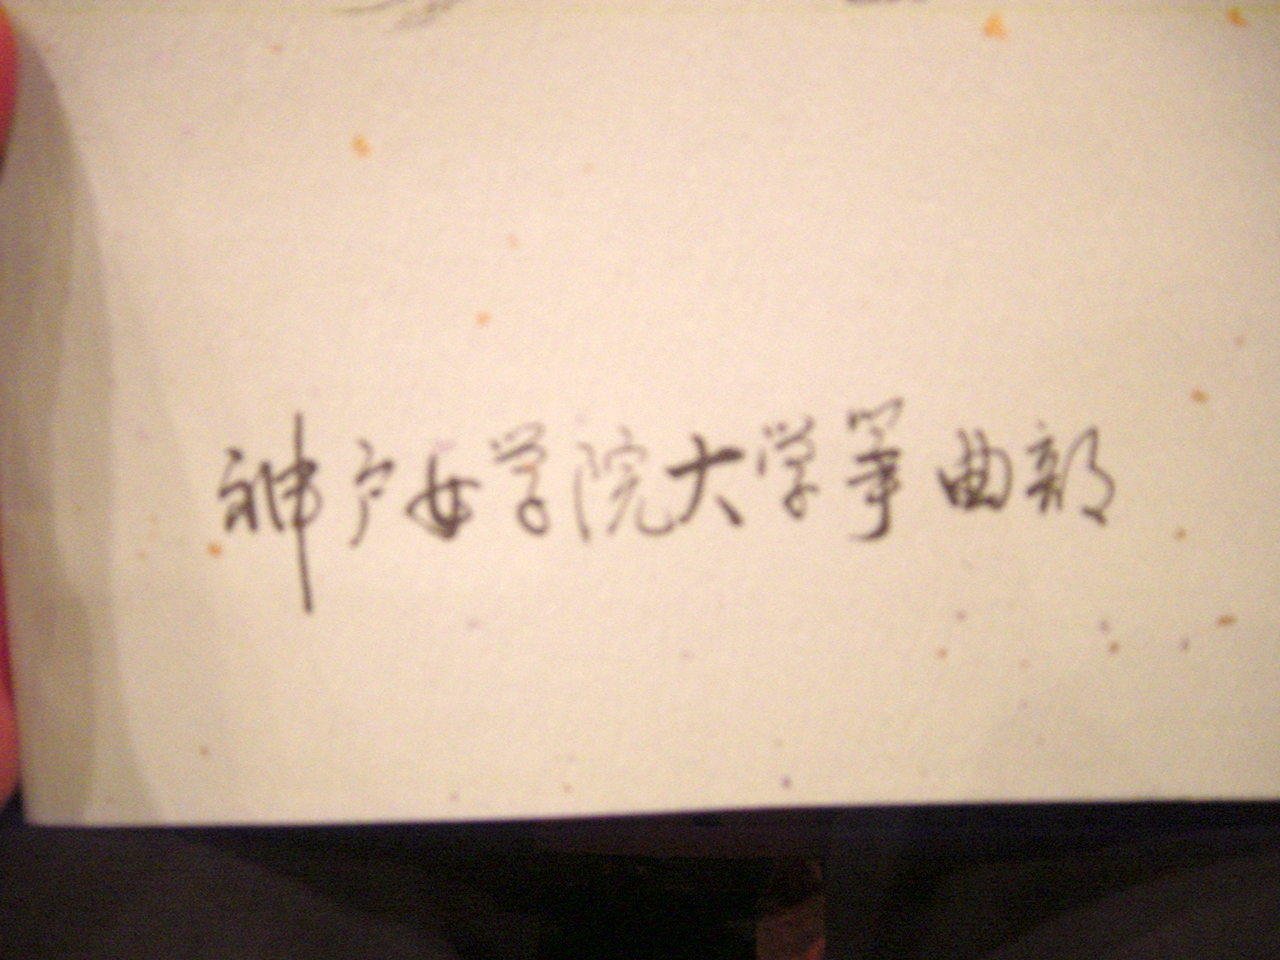 神戸女学院大学箏曲部